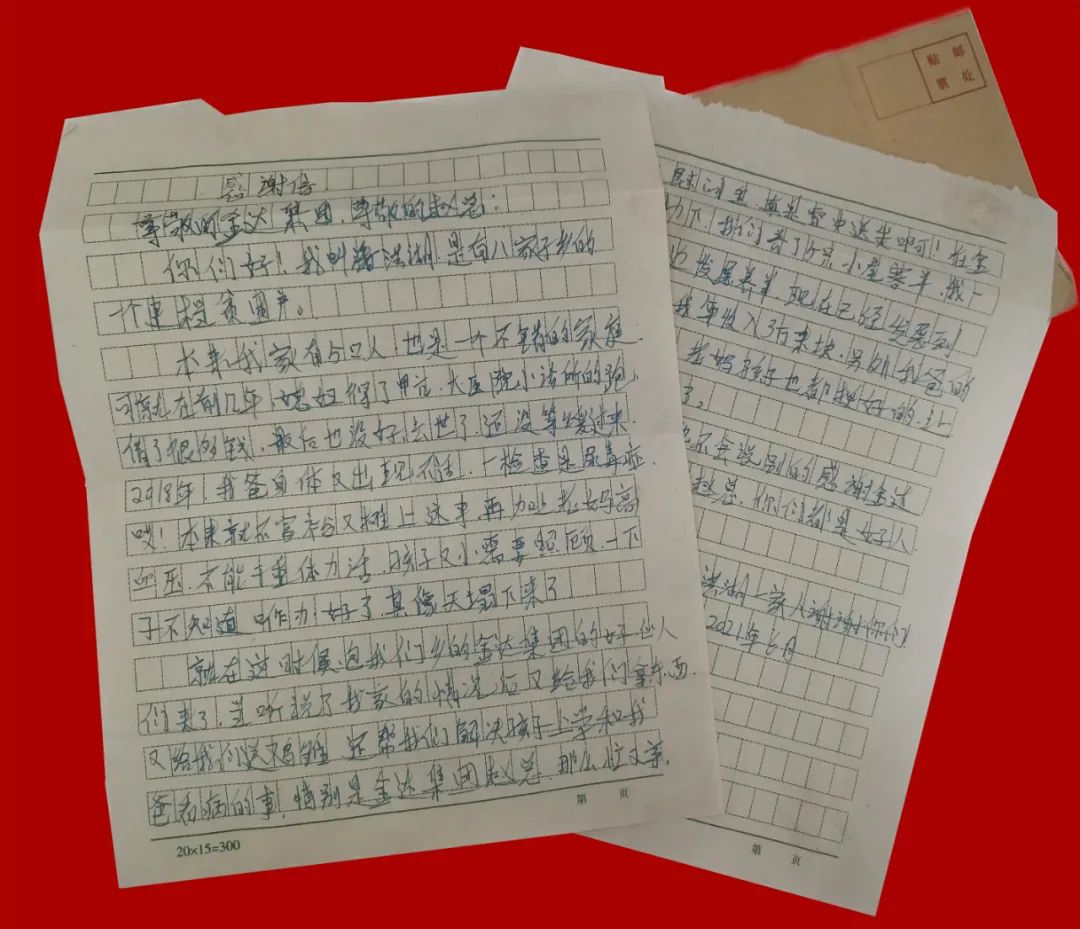 感谢信
尊敬的金达集团,尊敬的赵总:
你们好!我叫潘洪湖,是白八家子乡的
一个建档贫困户。
本来我家有5口人,也是一个不错的家庭,
可惜在前几年,媳妇得了甲症,大医院小诊所的跑,
借了很多钱,最后也没好,去世了,还没等缓过来,
2018年,我爸身体又出现,一检查是尿毒症,
哎!本来就不富裕又摊上这事,再加上老妈高
血压,不能干重体力活,孩子又小需要照顾,一下
子不知道咋办好了,真像天塌下来了
就在这时候,包我们乡的金达集团的好心人
们来了,当听说了我家的情况后又给我们拿东西,
又给我们送鸡,还帮我们解决孩子上学和我
爸看病的事,特别是金达集团赵总,那么忙又亲
第 页
20×15=300
慰问我,真是雪中送炭啊!在金
力下!我们养了15只小尾寒羊,我一
发展养羊,现在已经发展到
我年收入3万来块,另外,我爸的
老妈孩子也都挺好的,让
了。
也不会说别的,感谢金达
赵总,你们都是好人
洪湖一家人谢谢你们
2021年6月
第 页
贴 邮
票 处